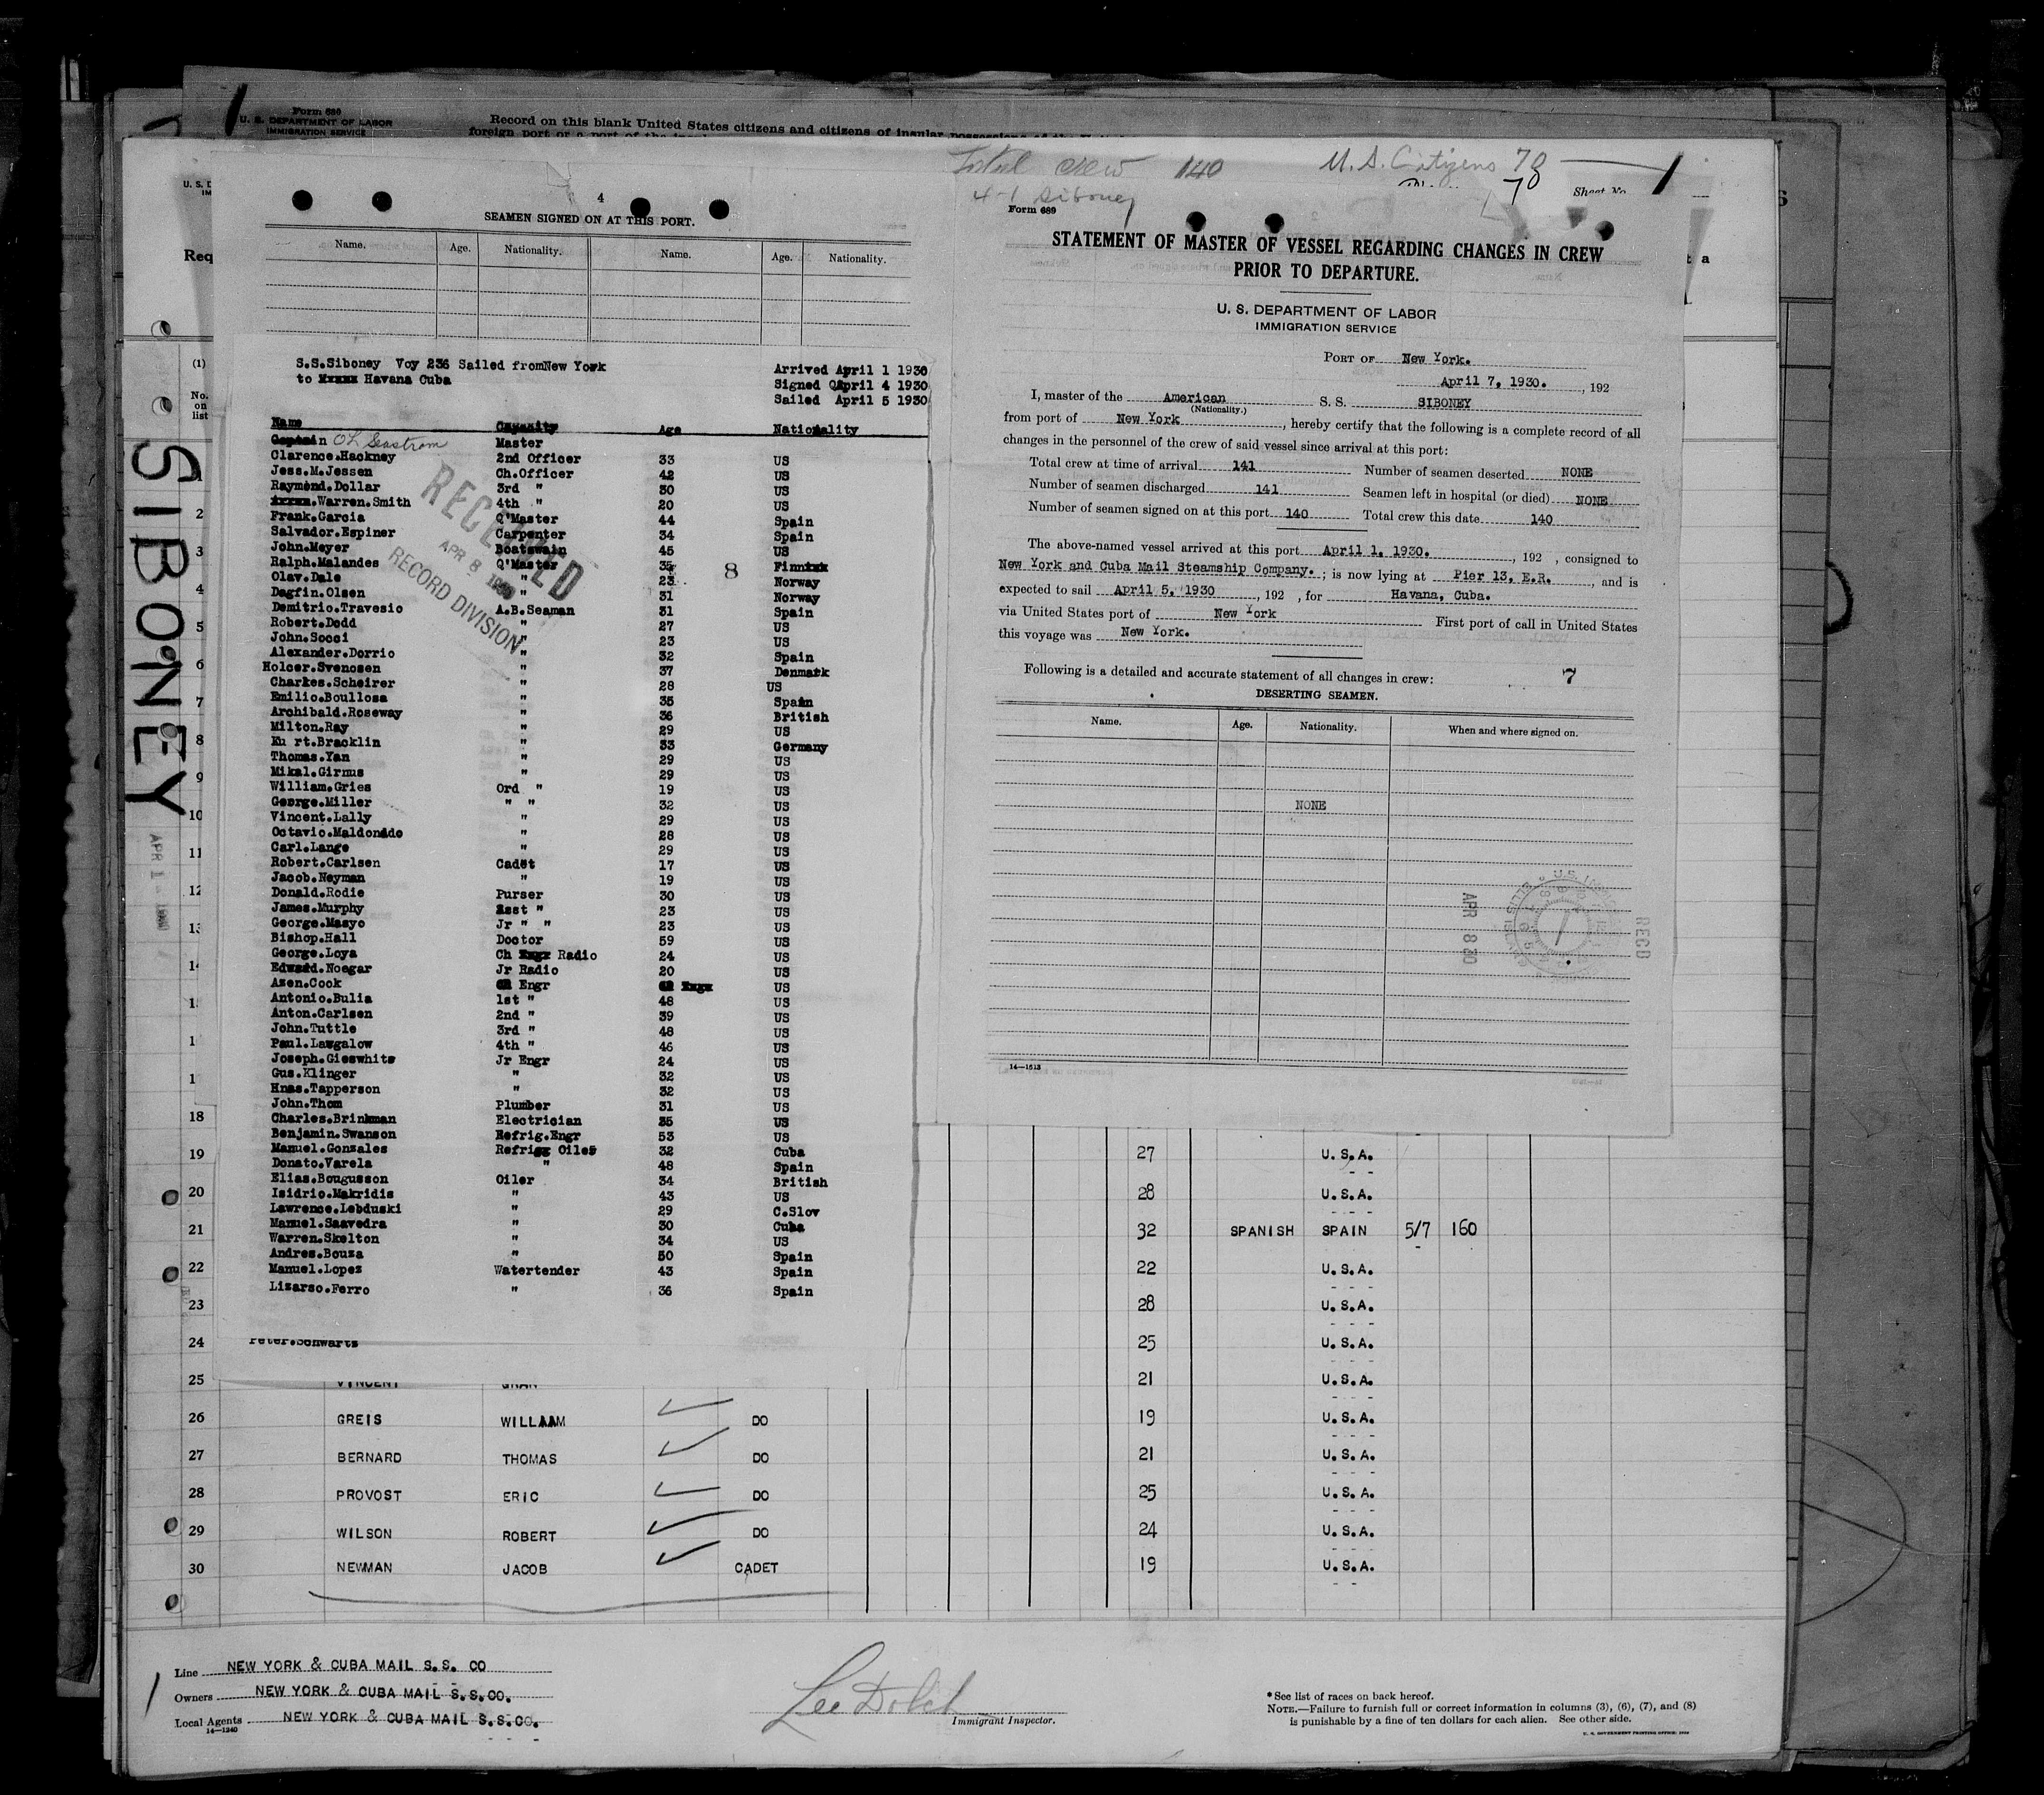 Form 689
U. S. DEPARTMENT OF LABOR
IMMIGRATION SERVICE
Record on this blank United States citizens and citizens of insular possessions of the
foreign port or a port of the
Total crew 140
U.S. Citizens 78
70
4-1 Siboney
Sheet No.
U. S. D
IM
Req
t a
6
(1)
No.
on
list
SIBONEY
APR 1
4
SEAMEN SIGNED ON AT THIS PORT.
Name. Age. Nationality. Name. Age. Nationality.
S.S.Siboney Voy 236 Sailed fromNew York
to xxxxx Havana Cuba
Arrived April 1 1930
Signed OApril 4 1930
Sailed April 5 1930
Name Capacity Age Nationality
Captain OL Seastrom Master
Clarence.Hackney 2nd Officer 33 US
Jess.M.Jessen Ch.Officer 42 US
Raymond.Dollar 3rd " 30 US
xxxxx.Warren.Smith 4th " 20 US
Frank.Garcia Q'Master 44 Spain
Salvador.Espiner Carpenter 34 Spain
John.Meyer Boatswain 45 US
Ralph.Malandes Q'Master 35 Finnxxx
Olav.Dale " 23 Norway
Dagfin.Olsen " 31 Norway
Demitrio.Travesio A.B.Seaman 31 Spain
Robert.Dodd " 27 US
John.Socci " 23 US
Alexander.Dorrio " 32 Spain
Holcer.Svenosen " 37 Denmark
Charkes.Scheirer " 28 US
Emilio.Boullosa " 35 Spain
Archibald.Roseway " 36 British
Milton.Ray " 29 US
Ku rt.Bracklin " 33 Germany
Thomas.Yan " 29 US
Mikal.Girnus " 29 US
William.Gries Ord " 19 US
George.Miller " " 32 US
Vincent.Lally " 29 US
Octavio.Maldonado " 28 US
Carl.Lange " 29 US
Robert.Carlsen Cadet 17 US
Jacob.Neyman " 19 US
Donald.Rodie Purser 30 US
James.Murphy Asst " 23 US
George.Masyo Jr " " 23 US
Bishop.Hall Doctor 59 US
George.Loya Ch Engr Radio 24 US
Edward.Noegar Jr Radio 20 US
Azen.Cook Engr US
Antonio.Bulia 1st " 48 US
Anton.Carlsen 2nd " 39 US
John.Tuttle 3rd " 48 US
Paul.Lawgalow 4th " 46 US
Joseph.Gieswhite Jr Engr 24 US
Gus.Klinger " 32 US
Hnas.Tapperson " 32 US
John.Thom Plumber 31 US
Charles.Brinkman Electrician 35 US
Benjamin.Swanson Refrig.Engr 53 US
Manuel.Gonzales Refrigg Oiles 32 Cuba
Donato.Varela " 48 Spain
Elias.Bougusson Oiler 34 British
Isidrio.Makridis " 43 US
Lawrence.Lebduski " 29 C.Slov
Manuel.Saavedra " 30 Cuba
Warren.Skelton " 34 US
Andres.Bouza " 50 Spain
Manuel.Lopez Watertender 43 Spain
Lizarso.Ferro " 36 Spain
Peter.Schwartz
8
RECEIVED
APR 8 1930
RECORD DIVISION
Form 689
STATEMENT OF MASTER OF VESSEL REGARDING CHANGES IN CREW
PRIOR TO DEPARTURE.
U. S. DEPARTMENT OF LABOR
IMMIGRATION SERVICE
PORT OF New York.
April 7, 1930. , 192
I, master of the American S. S. SIBONEY
(Nationality.)
from port of New York , hereby certify that the following is a complete record of all
changes in the personnel of the crew of said vessel since arrival at this port:
Total crew at time of arrival 141 Number of seamen deserted NONE
Number of seamen discharged 141 Seamen left in hospital (or died) NONE
Number of seamen signed on at this port 140 Total crew this date 140
The above-named vessel arrived at this port April 1, 1930. , 192 , consigned to
New York and Cuba Mail Steamship Company. ; is now lying at Pier 13, E.R. , and is
expected to sail April 5, 1930 , 192 , for Havana, Cuba.
via United States port of New York First port of call in United States
this voyage was New York.
Following is a detailed and accurate statement of all changes in crew: 7
DESERTING SEAMEN.
Name. Age. Nationality. When and where signed on.
NONE
APR 8 30
RECD
14—1513
1
2
3
4
5
6
7
8
9
10
11
12
13
14
1
1
1
18
19 27 U.S.A.
20 28 U.S.A.
21 32 SPANISH SPAIN 5/7 160
22 22 U.S.A.
23 28 U.S.A.
24 25 U.S.A.
25 VINCENT GRAN 21 U.S.A.
26 GREIS WILLAAM DO 19 U.S.A.
27 BERNARD THOMAS DO 21 U.S.A.
28 PROVOST ERIC DO 25 U.S.A.
29 WILSON ROBERT DO 24 U.S.A.
30 NEWMAN JACOB CADET 19 U.S.A.
Line NEW YORK & CUBA MAIL S.S. CO
Owners NEW YORK & CUBA MAIL S.S.CO.
Local Agents NEW YORK & CUBA MAIL S.S.CO.
14—1240
Lee Dolch
Immigrant Inspector.
* See list of races on back hereof.
NOTE.—Failure to furnish full or correct information in columns (3), (6), (7), and (8)
is punishable by a fine of ten dollars for each alien. See other side.
U. S. GOVERNMENT PRINTING OFFICE: 1929